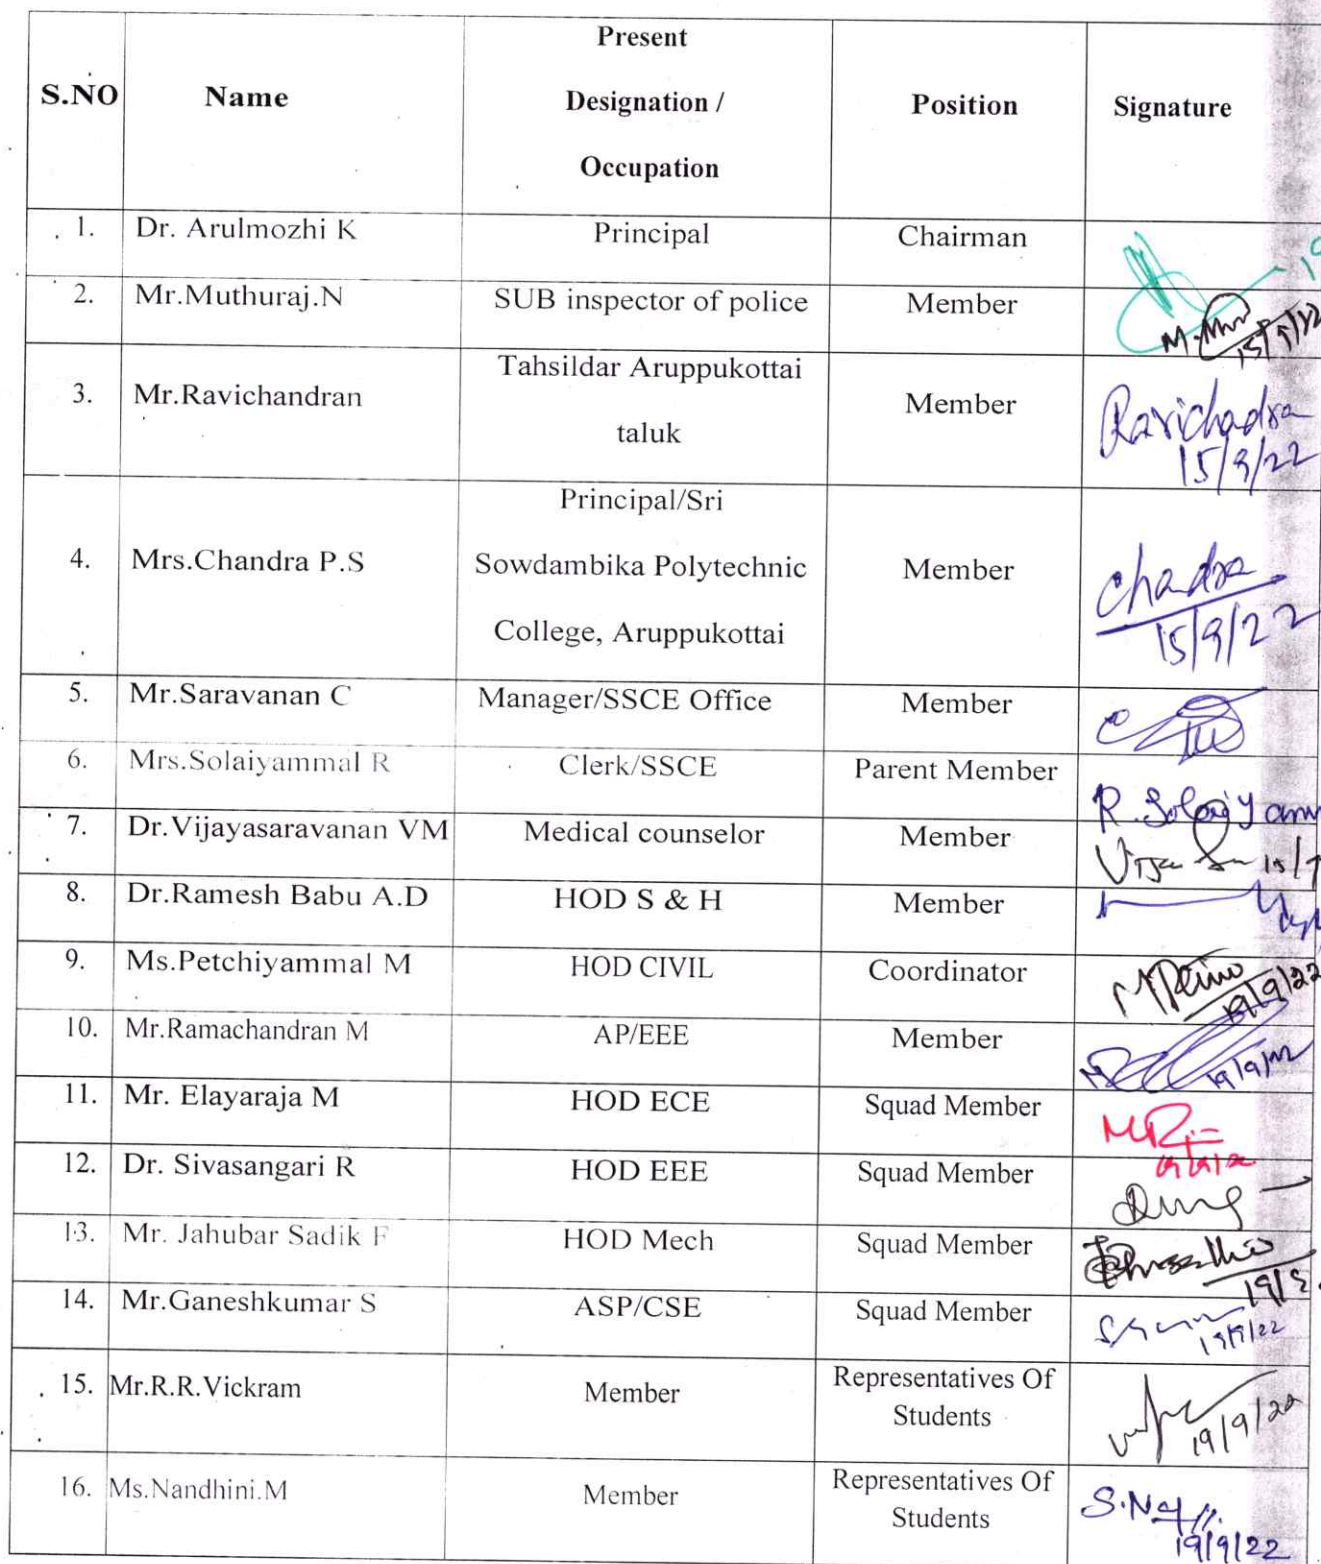 S.NO Name Present Designation / Occupation Position Signature
1. Dr. Arulmozhi K Principal Chairman
2. Mr.Muthuraj.N SUB inspector of police Member
3. Mr.Ravichandran Tahsildar Aruppukottai taluk Member Ravichadra
15/9/22
4. Mrs.Chandra P.S Principal/Sri Sowdambika Polytechnic College, Aruppukottai Member Chadra
15/9/22
5. Mr.Saravanan C Manager/SSCE Office Member
6. Mrs.Solaiyammal R Clerk/SSCE Parent Member
7. Dr.Vijayasaravanan VM Medical counselor Member
8. Dr.Ramesh Babu A.D HOD S & H Member
9. Ms.Petchiyammal M HOD CIVIL Coordinator
19/9/22
10. Mr.Ramachandran M AP/EEE Member
11. Mr. Elayaraja M HOD ECE Squad Member
12. Dr. Sivasangari R HOD EEE Squad Member
13. Mr. Jahubar Sadik F HOD Mech Squad Member
14. Mr.Ganeshkumar S ASP/CSE Squad Member
19/9/22
15. Mr.R.R.Vickram Member Representatives Of Students
19/9/22
16. Ms.Nandhini.M Member Representatives Of Students
19/9/22